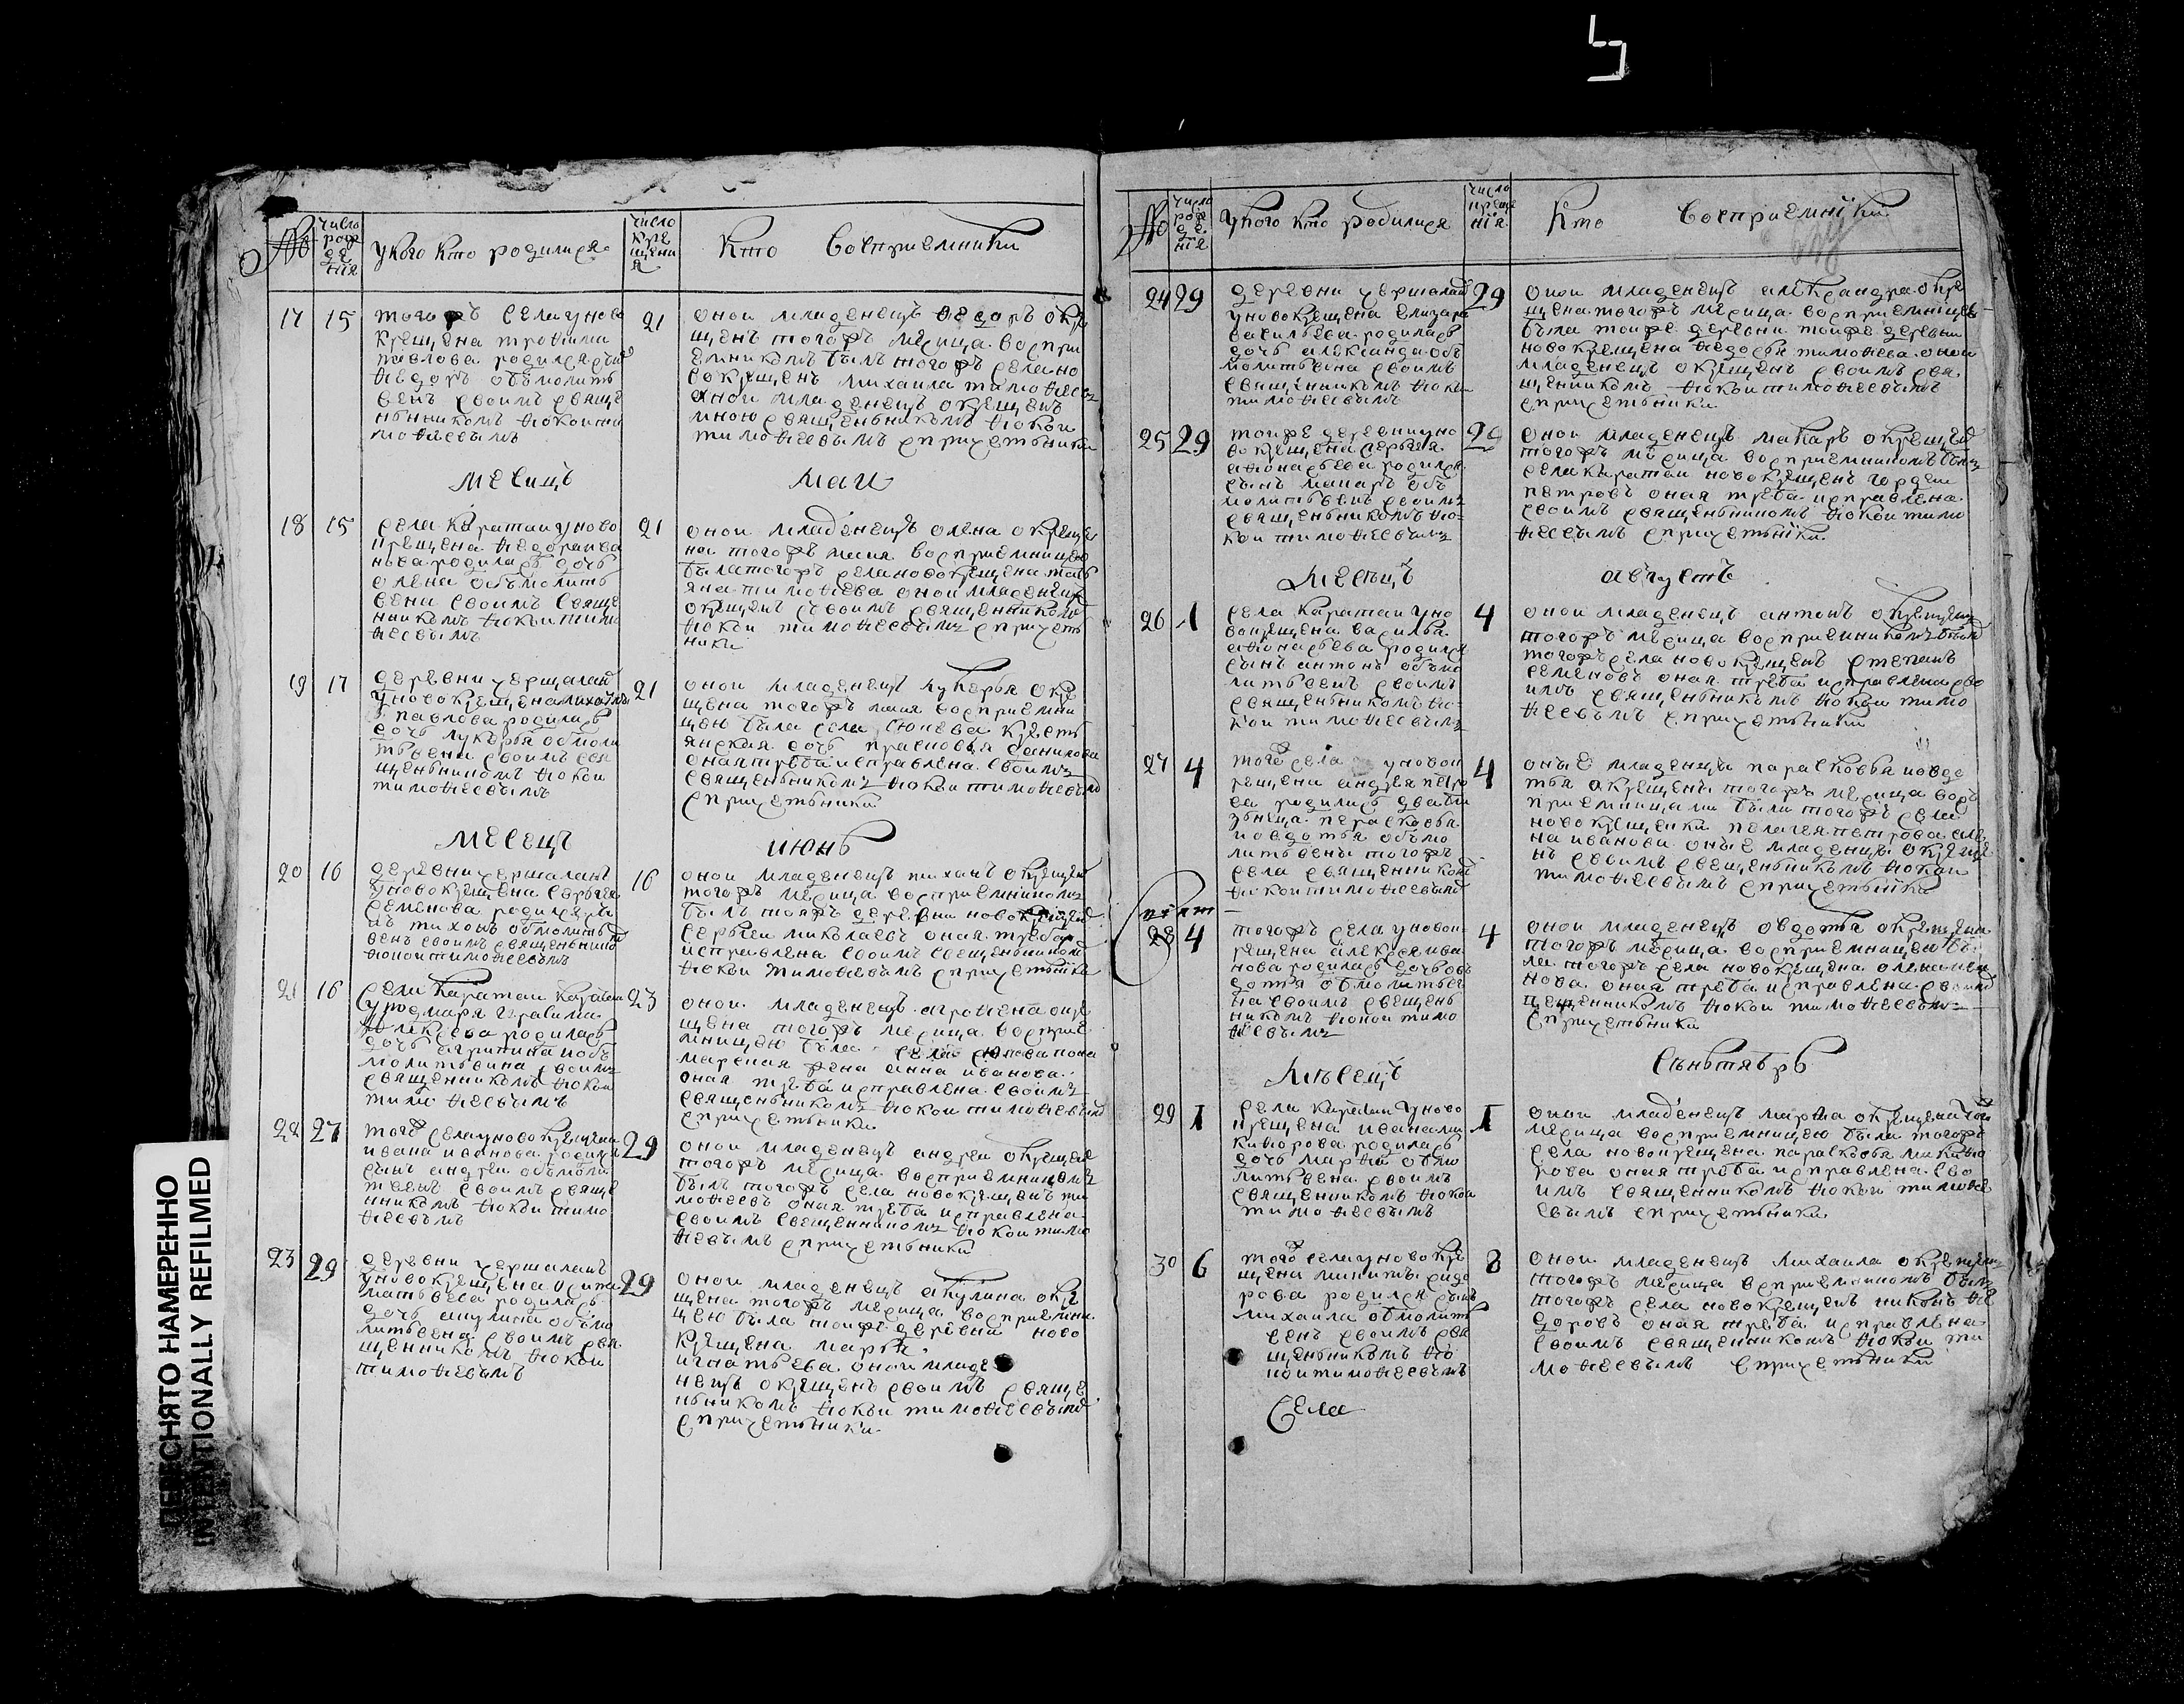 №
число рожде нія
у кого кто родился
число кре щени я
кто восприемники
17 15 21
тогожъ села у ново
крещена трофима
павлова родился сынъ
ѳедоръ обмолитъ
венъ своимъ свяще
нникомъ ѳокои ти
моѳеевымъ
онои младенецъ ѳедоръ окре
щенъ тогожъ месица воспри
емникомъ былъ тогожъ села но
вокрещенъ михаила тимоѳеевъ
онои младенецъ окрещенъ
мною священникомъ ѳокои
тимоѳеевымъ спричетники
месицъ маи
18 15 21
села каратаи у ново
крещена ѳедора ива
нова родилась дочь
олена объмолитъ
вени своимъ свяще
нникомъ ѳокои тимо
ѳеевымъ
онои младенецъ олена окреще
на тогожъ месица восприемницею
была тогожъ села новокрещена тать
яна тимоѳева онои младенецъ
окрещенъ своимъ священникомъ
ѳокои тимоѳеевымъ спричеть
ники
19 17 21
деревни
у новокрещена михаила
павлова родилась
дочь лукерья обмоли
твени своимъ свя
щенникомъ ѳокои
тимоѳеевымъ
онои младенецъ лукерья окре
щена тогожъ маия восприемни
цею была села сюнева кресть
янская дочь прасковья данилова
оная треба исправлена своимъ
священникомъ ѳокои тимоѳеевымъ
спричетники
месецъ июнь
20 16 16
деревни
у новокрещена сергея
семенова родился сы
нъ тихонъ обмолитъ
венъ своимъ священникомъ
ѳокои тимоѳеевымъ
онои младенецъ тихонъ окрещенъ
тогожъ месица восприемникомъ
былъ тояжъ деревни новокрещенъ
сергеи николаевъ оная треба
исправлена своимъ священникомъ
ѳокои тимоѳеевымъ спричетники
21 16 23
села каратаи
алексева родилась
дочь агрипина и обь
молитвина своимъ
священникомъ ѳокои
тимоѳеевымъ
онои младенецъ агрофена окре
щена тогожъ месица восприе
мницею была села сюнева поно
марская жена анна иванова
оная треба исправлена своимъ
священникомъ ѳокои тимоѳеевымъ
спричетники
22 27 29
того села у новокрещена
ивана иванова родился
сынъ андреи объмоли
твенъ своимъ свяще
нникомъ ѳокои тимо
ѳеевымъ
онои младенецъ андреи окрещенъ
тогожъ месица восприемникомъ
былъ тогожъ села новокрещенъ ти
моѳеевъ оная треба исправлена
своимъ священникомъ ѳокои тимо
ѳеевымъ спричетники
23 29 29
деревни
у новокрещена
матвеева родилась
дочь акулина объмо
литвена своимъ свя
щенникомъ ѳокои
тимоѳеевымъ
онои младенецъ акулина окре
щена тогожъ месица восприемни
цею была тоижъ деревни ново
крещена марья
игнатьева онои младе
нецъ окрещенъ своимъ свяще
нникомъ ѳокои тимоѳеевымъ
спричетники
№
число рожде нія
у кого кто родился
число креще нія
кто восприемники
24 29 29
деревни
у новокрещена елизара
васильева родилась
дочь александра объ
молитвена своимъ
священникомъ ѳокои
тимоѳеевымъ
онои младенецъ александра окре
щена тогожъ месица восприемницею
была тоиже деревни тоиже деревни
новокрещена ѳедосья тимоѳева онои
младенецъ окрещенъ своимъ свя
щенникомъ ѳокои тимоѳеевымъ
спричетники
25 29 29
тоиже деревни у но
вокрещена сергея
аѳонасьева родился
сынъ макаръ объ
молитвенъ своимъ
священникомъ ѳо
кои тимоѳеевымъ
онои младенецъ макаръ окрещенъ
тогожъ месица восприемникомъ былъ
села каратаи новокрещенъ гордеи
петровъ оная треба исправлена
своимъ священникомъ ѳокои тимо
ѳеевымъ спричетники
месецъ августъ
26 1 4
села каратаи у но
вокрещена василья
аѳонасьева родился
сынъ антонъ объмо
литвенъ своимъ
священникомъ ѳо
кои тимоѳеевымъ
онои младенецъ антонъ окрещенъ
тогожъ месица восприемникомъ былъ
тогожъ села новокрещенъ степанъ
семеновъ оная треба исправлена сво
имъ священникомъ ѳокои тимо
ѳеевымъ спричетники
27 4 4
того села у новок
рещена андрея петро
ва родились два бли
зънеца парасковья
и овдотья объмо
литвены тогожъ
села священникомъ
ѳокои тимоѳеевымъ
оные младенцы парасковья и овдо
тья окрещены тогожъ месица вось
приемницами были тогожъ села
новокрещенки пелагея петрова
на иванова оные младенцы окреще
нъ своимъ священникомъ ѳокои
тимоѳеевымъ спричетники
28 4 4
тогожъ села у новок
рещена алексея ива
нова родилась дочь овь
дотя обмолитвен
на своимъ священ
никомъ ѳокои тимо
ѳеевымъ
онои младенецъ овдотья окрещена
тогожъ месица восприемницею бы
ла тогожъ села новокрещена олена
нова оная треба исправлена своимъ
священникомъ ѳокои тимоѳеевымъ
спричетники
месецъ сеньтябрь
29 1 1
села каратаи у ново
крещена ивана ни
киѳорова родилась
дочь марѳа объмо
литвена своимъ
священникомъ ѳокои
тимоѳеевымъ
онои младенецъ марѳа окрещена того
месица восприемницею была тогожъ
села новокрещена парасковья никиѳо
рова оная треба исправлена сво
имъ священникомъ ѳокои тимоѳе
евымъ спричетники
30 6 8
того села у новокре
щена никиты сидо
рова родился сынъ
михаила обмолит
венъ своимъ свя
щенникомъ ѳо
кои тимоѳеевымъ
онои младенецъ михаила окрещенъ
тогожъ месица восприемникомъ былъ
тогожъ села новокрещенъ никонъ ѳе
доровъ оная треба исправлена
своимъ священникомъ ѳокои ти
моѳеевымъ спричетники
села
ПЕРЕСНЯТО НАМЕРЕННО
INTENTIONALLY REFILMED